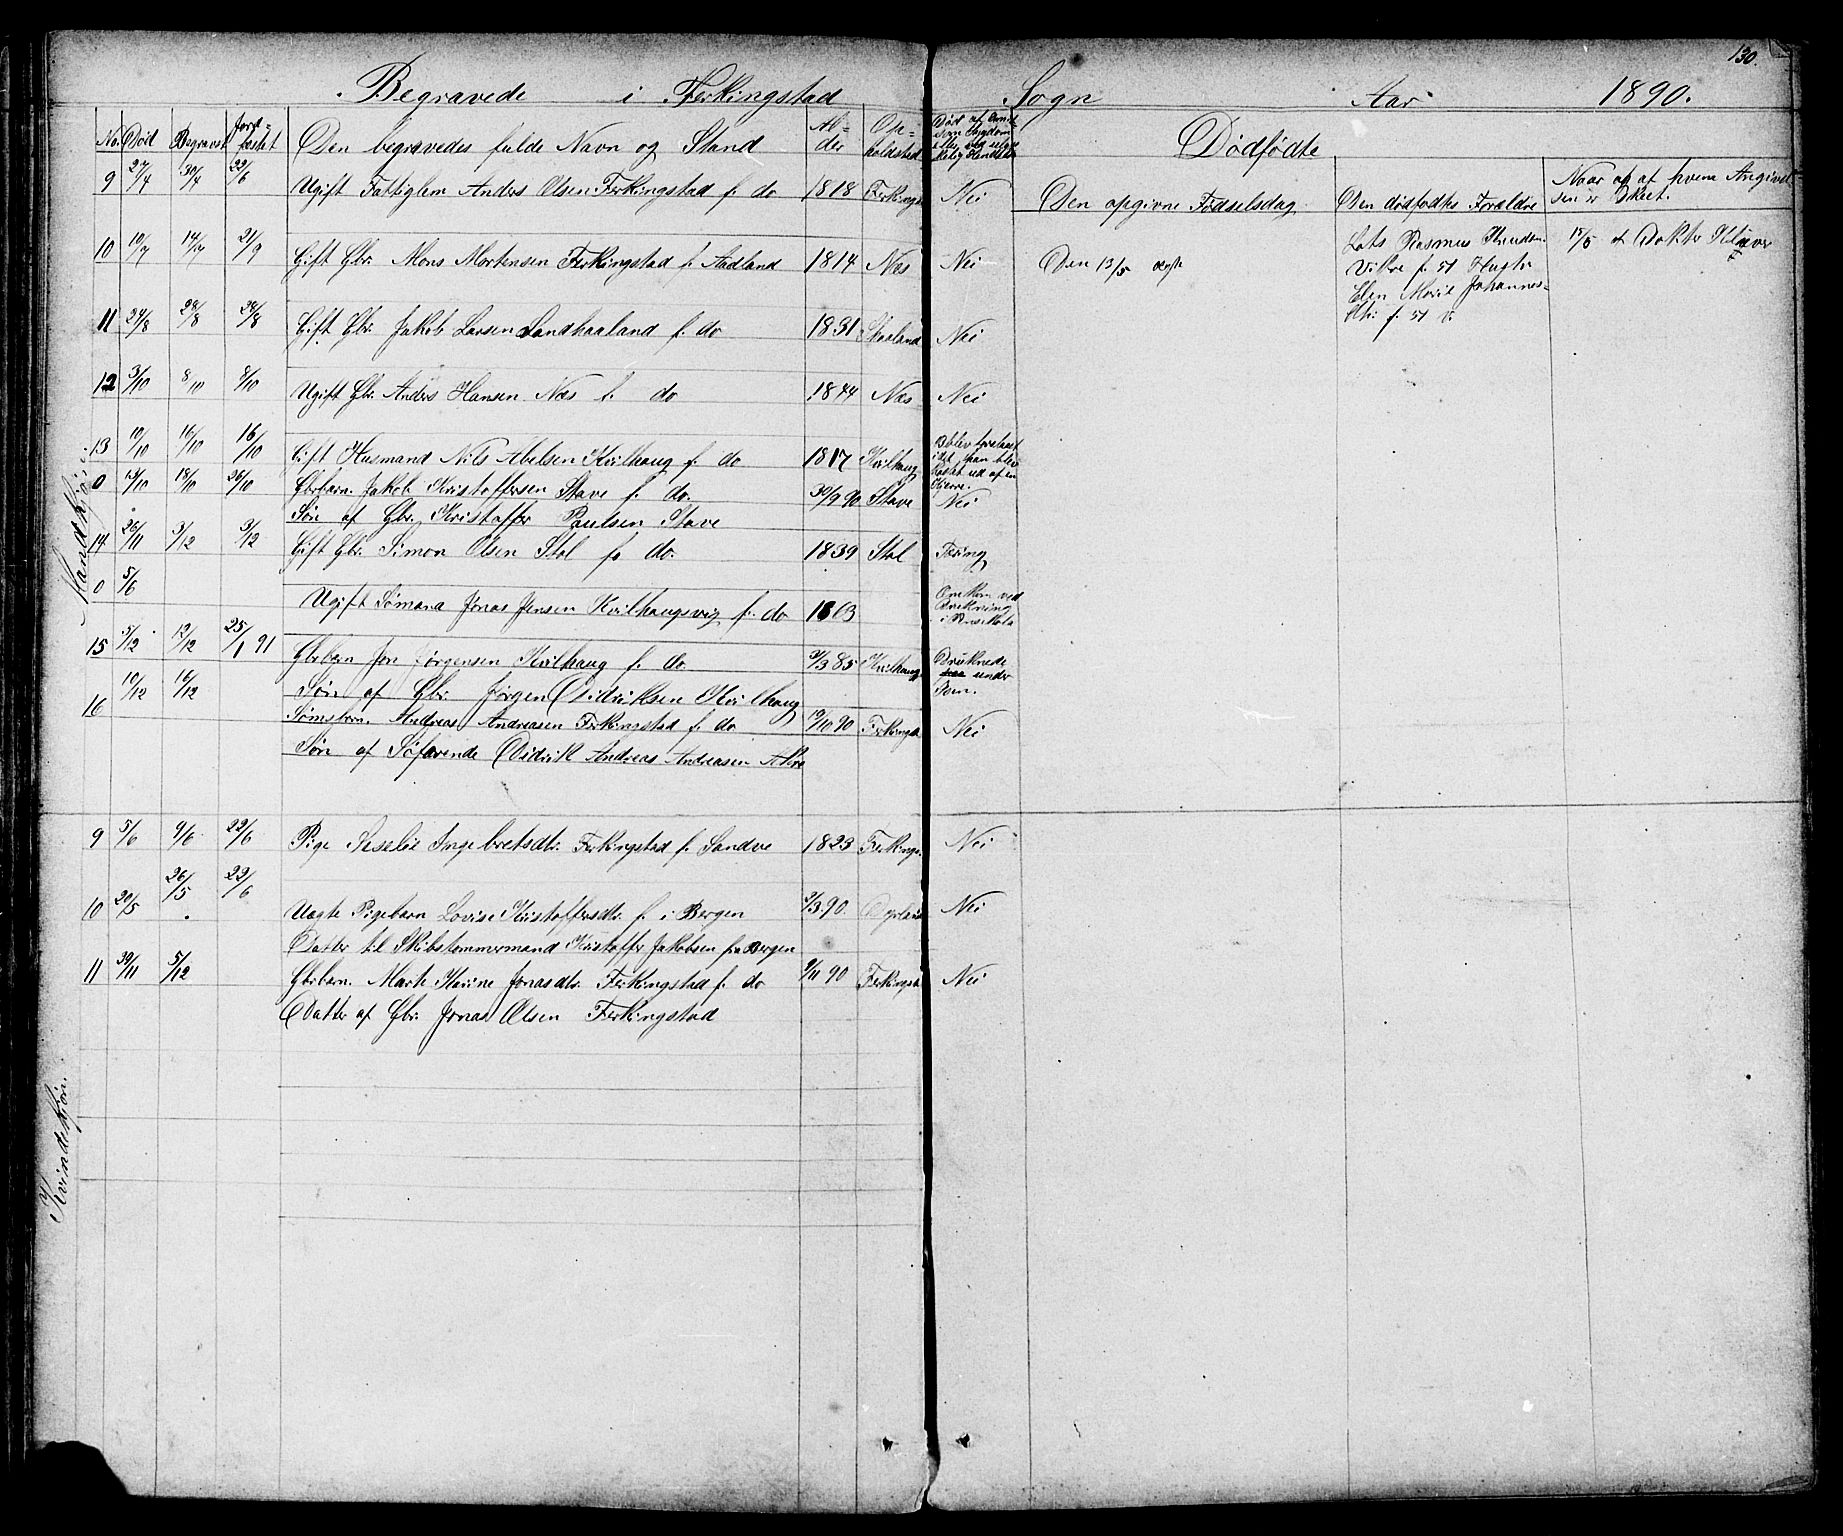 130.
Begravede i Ferkingstad Sogn Aar 1890.
No. Død Begravet Jord-fæstet Den begravedes fulde Navn og Stand Al-der Op-holdsted
Dødfødte
Den opgivne Fødselsdag Den dødfødtes Forældre Naar og af hvem Angivel-
sen er skeet.
Mandkjøn.
9 27/4 30/4 22/6 Ugift Fattiglem Anders Olsen Ferkingstad f. do 1818 Ferkings. Nei
10 10/7 14/7 21/9 Gift Gbr. Mons Mortensen Ferkingstad f. Aadland 1814 Næs Nei
11 24/8 29/8 29/8 Gift Gbr. Jakob Larsen Sandhaaland f. do 1831 Shaaland Nei
12 3/10 8/10 8/10 Ugift Gbr. Anders Hansen Næs f. do 1844 Næs Nei
13 10/10 16/10 16/10 Gift Husmand Nils Abelsen Kvilhaug f. do 1817 Kvilhaug
kastet ud af en
Kjerre.
0 14/10 18/10 26/10 Gbrbarn. Jakob Kristoffersen Stave f. do. 30/9 90 Stave Nei
Søn af Gbr. Kristoffer Paulsen Stave
14 26/11 3/12 3/12 Gift Gbr. Simon Olsen Stol f. do. 1839 Stol Tæring
0 5/6 Ugift Sømand Jonas Jensen Kvilhaugsvig f. do 1863 Omkom ved
Drukning
15 5/12 12/12 25/1 91 Gbrbarn Jon Jørgensen Kvilhaug f. do. 9/3 85 Kvilhaug Druknede
under
Søn af Gbr. Jørgen Didriksen Kvilhaug
16 10/12 16/12 Sømsbarn. Andreas Andreasen Ferkingstad f. do 19/10 90 Ferkingst. Nei
Søn af Søfarende Didrik Andreas Andreasen Akre
Den 13/5 ægte
Lots Rasmus Knudsen
Vikre f. 51 Hustru
Elen Marie Johannes-
dtr. f. 51
15/5 af Doktor
Kvindekjøn.
9 5/6 9/6 22/6 Pige Seselie Ingebretsdtr. Ferkingstad f. Sandve 1823 Ferkings. Nei
10 20/5 26/5 22/6 Uægte Pigebarn Lovise Kristoffersdtr. f. i Bergen 2/3 90. Nei
Datter til Skibstømmermand Kristoffer Jakobsen fra Bergen
11 30/11 5/12 Gbrbarn. Marte Karine Jonasdtr. Ferkingstad f. do 9/11 90 Ferkingst. Nei
Datter af Gbr. Jonas Olsen Ferkingstad